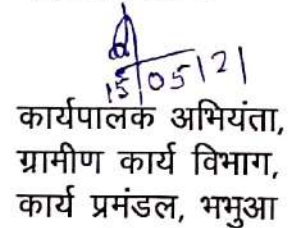 15/05/21
कार्यपालक अभियंता,
ग्रामीण कार्य विभाग,
कार्य प्रमंडल, भभुआ